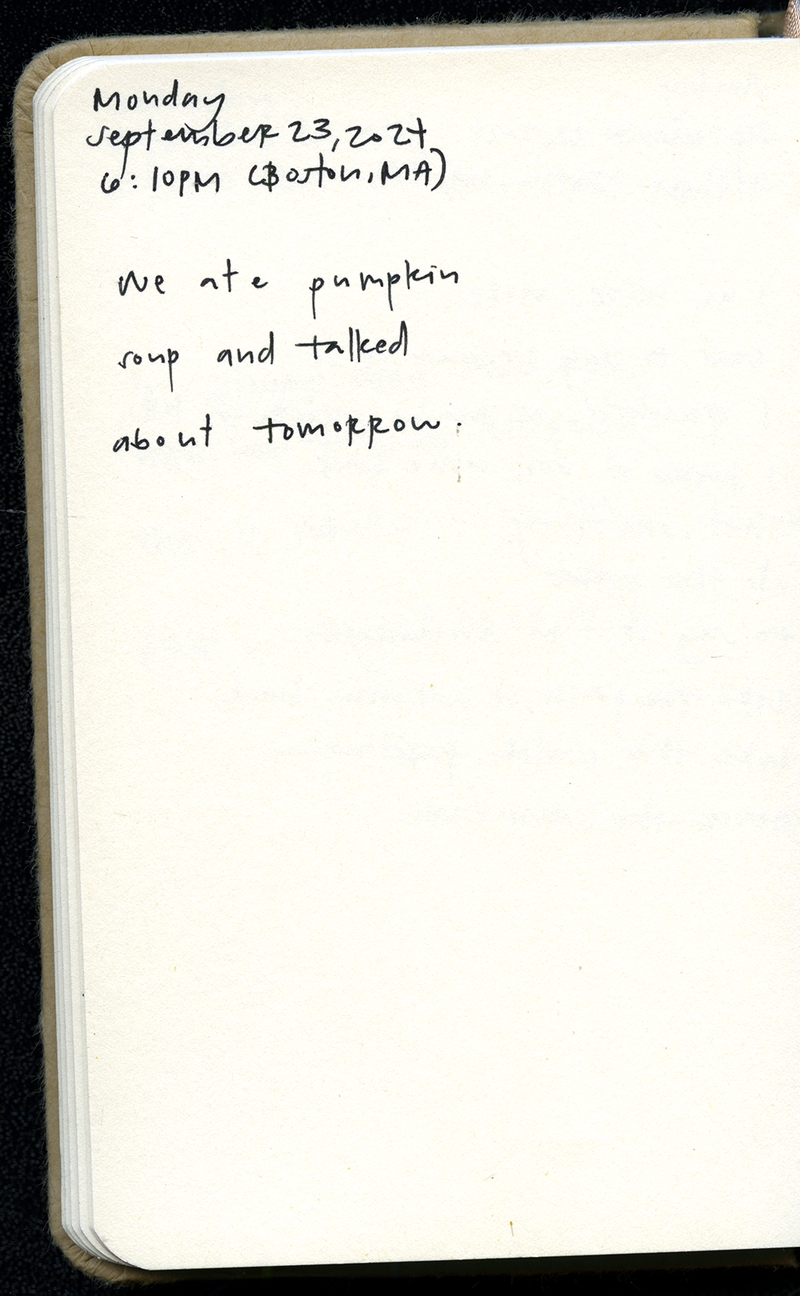 Monday
September 23, 2024
6:10PM (Boston, MA)
We ate pumpkin
soup and talked
about tomorrow.